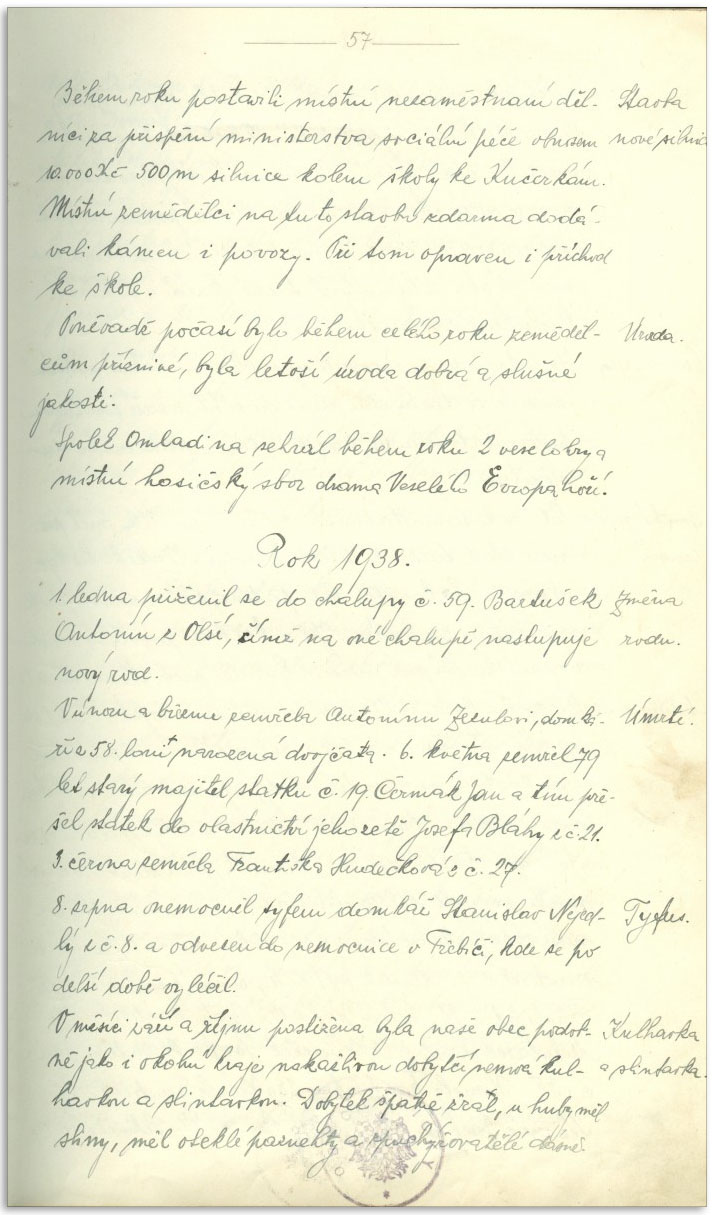 57
Během roku postavili místní nezaměstnaní děl- Stavba
níci za přispění ministerstva sociální péče obnosem nové silnice
10.000 Kč 500 m silnice kolem školy ke Kučerkám.
Místní zemědělci na tuto stavbu zdarma dodá-
vali kámen i povozy. Při tom opraven i příchod
ke škole.
Poněvadž počasí bylo během celého roku zeměděl- Úroda.
cům příznivé, byla letoší úroda dobrá a slušné
jakosti.
Spolek Omladina sehrál během roku 2 veselohry a
místní hasičský sbor drama Veselého Evropa hoří.
Rok 1938.
1. ledna přiženil se do chalupy č. 59. Bartušek Změna
Antonín z Olší, čímž na oné chalupě nastupuje rodu.
nový rod.
V únoru a březnu zemřela Antonínu Zezulovi, domká- Úmrtí.
ři z 58. loni narozená dvojčata. 6. května zemřel 79
let starý majitel statku č. 19. Čermák Jan a tím pře-
šel statek do vlastnictví jeho zetě Josefa Bláhy z č. 21.
3. června zemřela Františka Hudečková z č. 27.
8. srpna onemocněl tyfem domkář Stanislav Nejed- Tyfus.
lý z č. 8. a odvezen do nemocnice v Třebíči, kde se po
delší době vyléčil.
V měsíci září a říjnu postižena byla naše obec podob- Kulhavka
ně jako i okolní kraje nakažlivou dobytčí nemocí kul- a slintavka.
havkou a slintavkou. Dobytek špatně žral, u huby měl
sliny, měl oteklé paznehty a